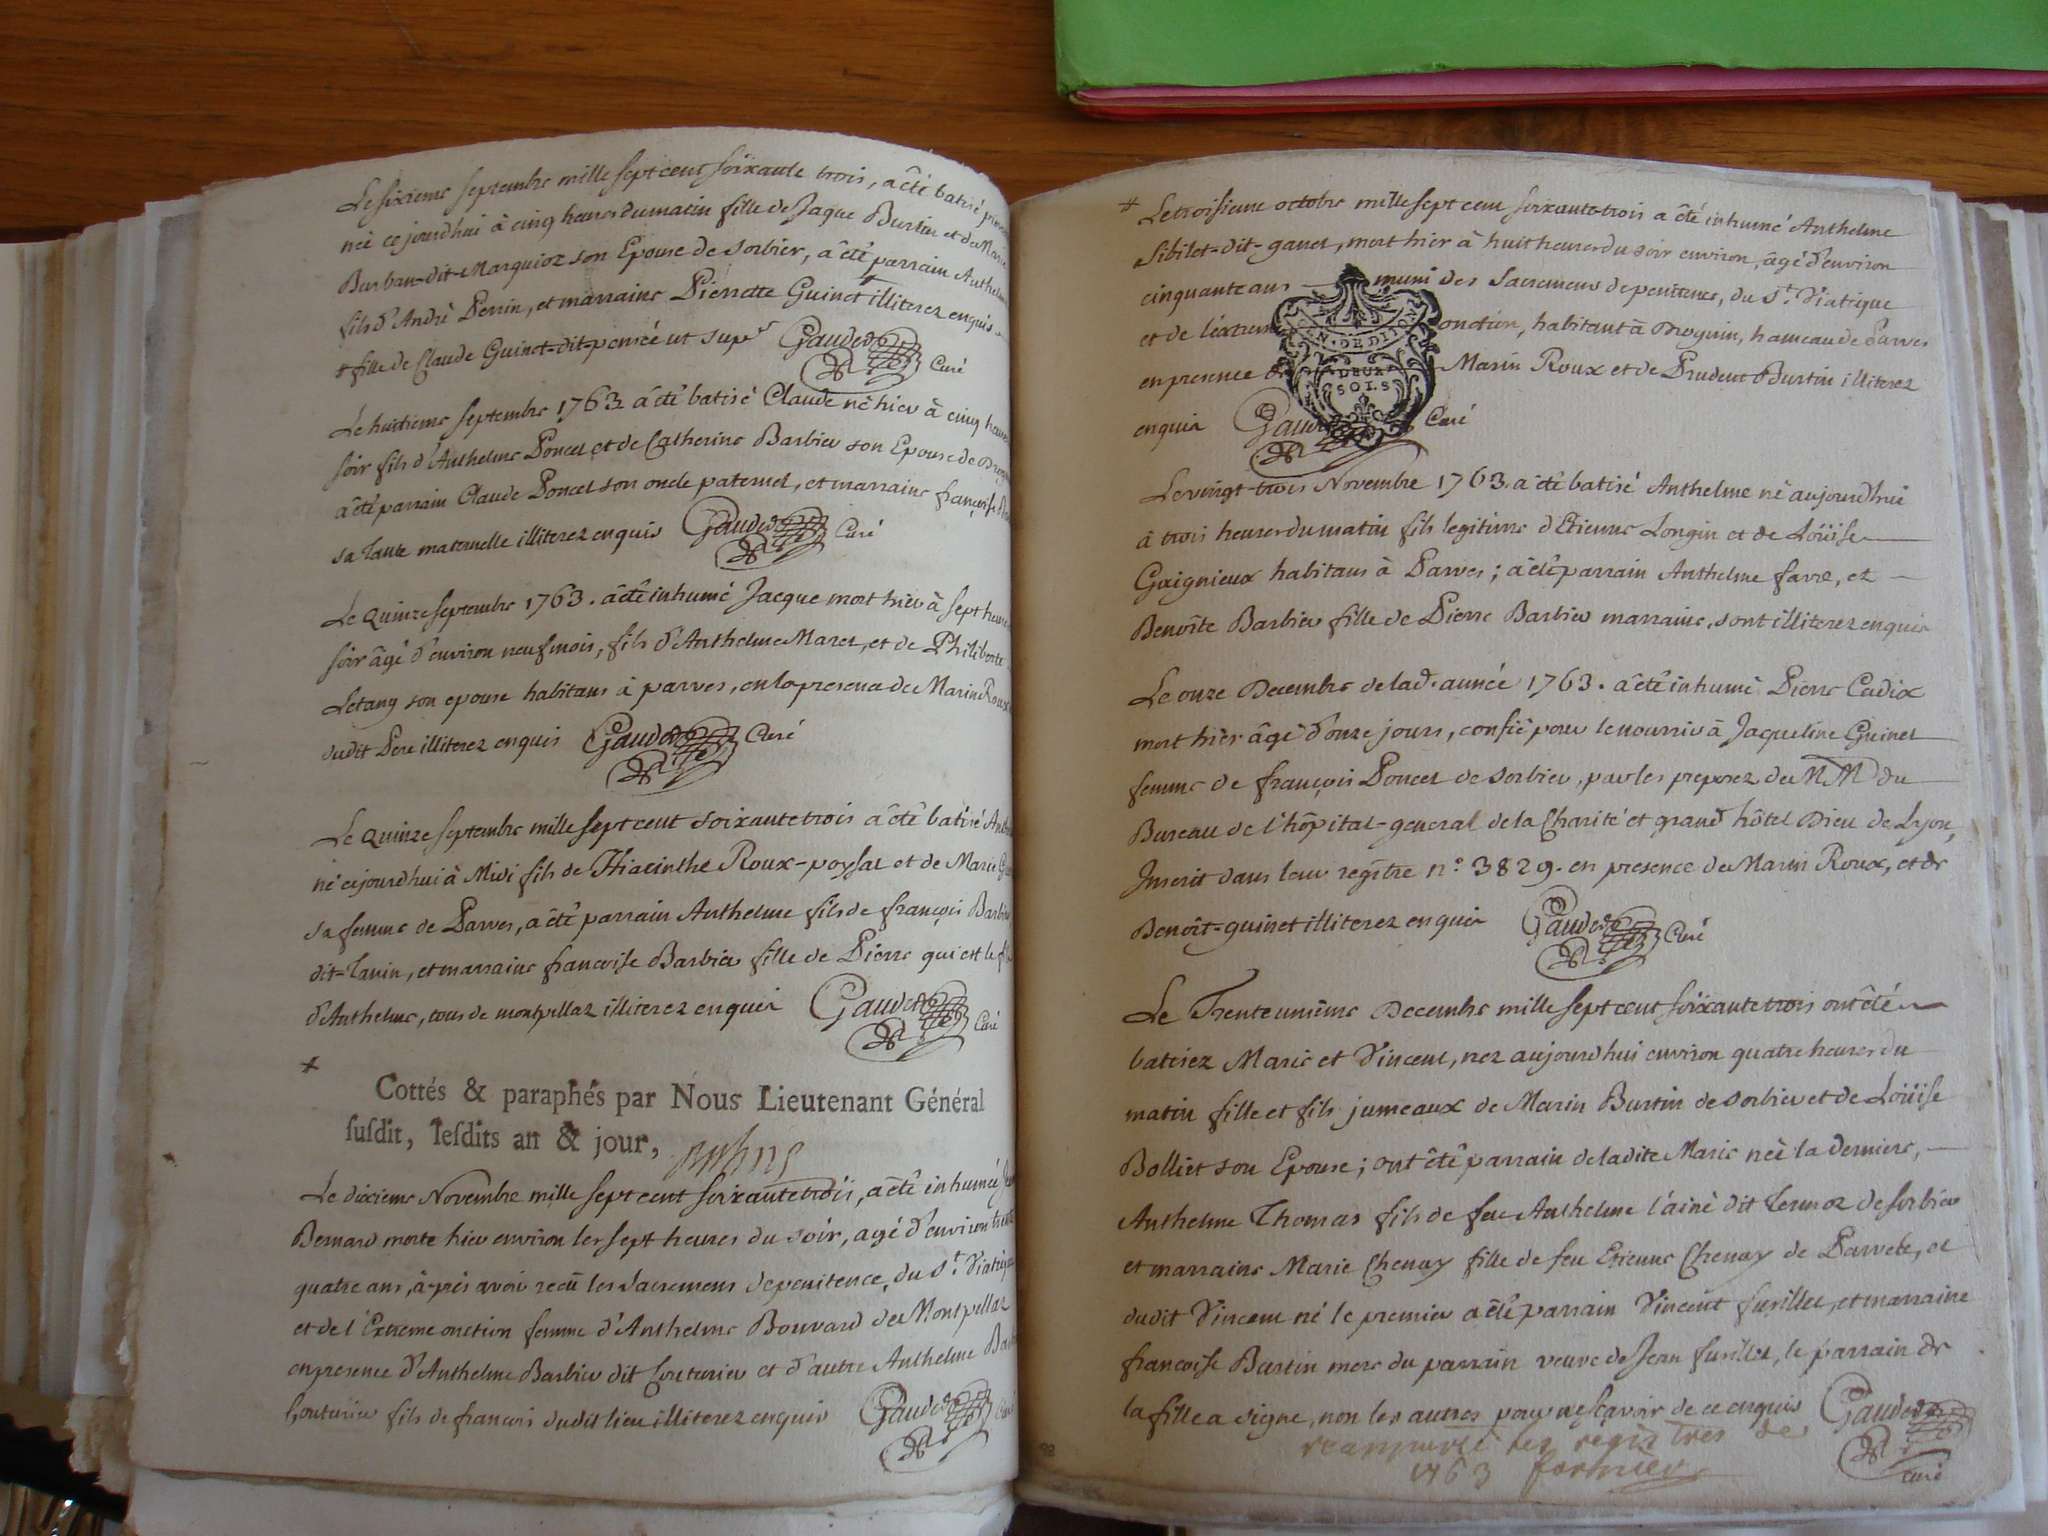 Le sixieme septembre mille sept cent soixante trois, a êté batisé
née ce jourdhui à cinq heures du matin fille de Jaque Burtin et de Marie
Burban-dit-Marquioz son Epouse de sorbier, a êté parrain Anthelme
fils d'André Perrin, et marraine Pierrette Guinet + illiterez enquis
+ fille de Claude Guinet-dit-perrée ut supr Gauded Curé
Le huitieme septembre 1763 a êté batisé Claude né hier à cinq heures
soir fils d'Anthelme Poncet et de Catherine Barbier son Epouse de
a êté parrain Claude Poncet son oncle paternel, et marraine françoise
sa Tante maternelle illiterez enquis Gauded Curé
Le Quinze septembre 1763. a êté inhumé Jacque mort hier à sept heures
soir âgé d'environ neuf mois, fils d'Anthelme Maret, et de Philiberte
Letang son epouse habitans à parves, en la presence de Marin Roux
dudit Pere illiterez enquis Gauded Curé
Le Quinze septembre mille sept cent soixante trois a êté batisé
né cejourdhui à Midi fils de Hiacinthe Roux-poysat et de Marie
sa femme de Parves, a êté parrain Anthelme fils de françois Barbier
dit-Tanin, et marraine francoise Barbier fille de Pierre qui est le fils
d'Anthelme, tous de montpellaz illiterez enquis Gauded Curé
+
Cottés & paraphés par Nous Lieutenant Général
susdit, lesdits an & jour,
Le dixieme Novembre mille sept cent soixante trois, a êté inhumée
Bernard morte hier environ les sept heures du soir, agé d'environ trente
quatre ans, après avoir recû les sacremens de penitence, du St. Viatique
et de l'Extreme onction femme d'Anthelme Bouvard de Montpellaz
en presence d'Anthelme Barbier dit Couturier et d'autre Anthelme
Couturier fils de francois dudit lieu illiterez enquis Gauded Curé
+ Le troisieme octobre mille sept cent soixante trois a êté inhumé Anthelme
Sibilet-dit-ganet, mort hier à huit heures du soir environ, âgé d'environ
cinquante ans muni des Sacremens de penitence, du St. Viatique
et de l'extreme onction, habitant à Drognin, hameau de Parves
en presence de Marin Roux et de Prudent Burtin illiterez
enquis Gauded Curé
DEUX
SOLS
Le vingt-trois Novembre 1763. a êté batisé Anthelme né aujourdhui
à trois heures du matin fils legitime d'Etienne Longin et de Loüise
Gaignieux habitans à Parves; a êté parrain Anthelme favre, et
Benoîte Barbier fille de Pierre Barbier marraine, sont illiterez enquis
Le onze Decembre de lad. année 1763. a êté inhumé Pierre Cadix
mort hier âgé d'onze jours, confié pour le nourrir à Jaqueline Guinet
femme de françois Poncet de sorbier, par les preposez de MM du
Bureau de l'hôpital-general de la Charité et grand hôtel Dieu de Lyon,
Inscrit dans leur regître n° 3829. en presence de Marin Roux, et de
Benoît-guinet illiterez enquis Gauded Curé
Le Trente unième Decembre mille sept cent soixante trois ont êté
batisez Marie et Vincent, nez aujourdhui environ quatre heures du
matin fille et fils jumeaux de Marin Burtin de sorbier et de Loüise
Bolliet son Epouse; ont êté parrain de ladite Marie née la derniere,
Anthelme Thomas fils de feu Anthelme l'ainé dit Termoz de sorbier
et marraine Marie Chenay fille de feu Etienne Chenay de Parvete, et
dudit Vincent né le premier a êté parrain Vincent fusillet, et marraine
francoise Burtin mere du parrain veuve de Jean fusillet, le parrain de
la fille a signé, non les autres pour ne sçavoir de ce enquis Gauded
curé
des registres de
1763